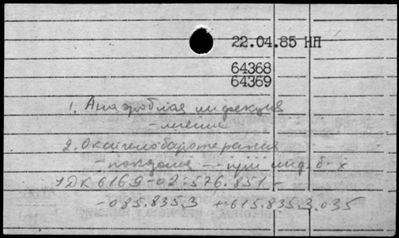 22.04.85 НП
64368
64369
1. Анаэробная инфекция
- лечение
2. Оксигенобаротерапия
- показания - при инф. б-х
УДК 616.9-02:576.851-
-085.835.3 + 615.835.3.035